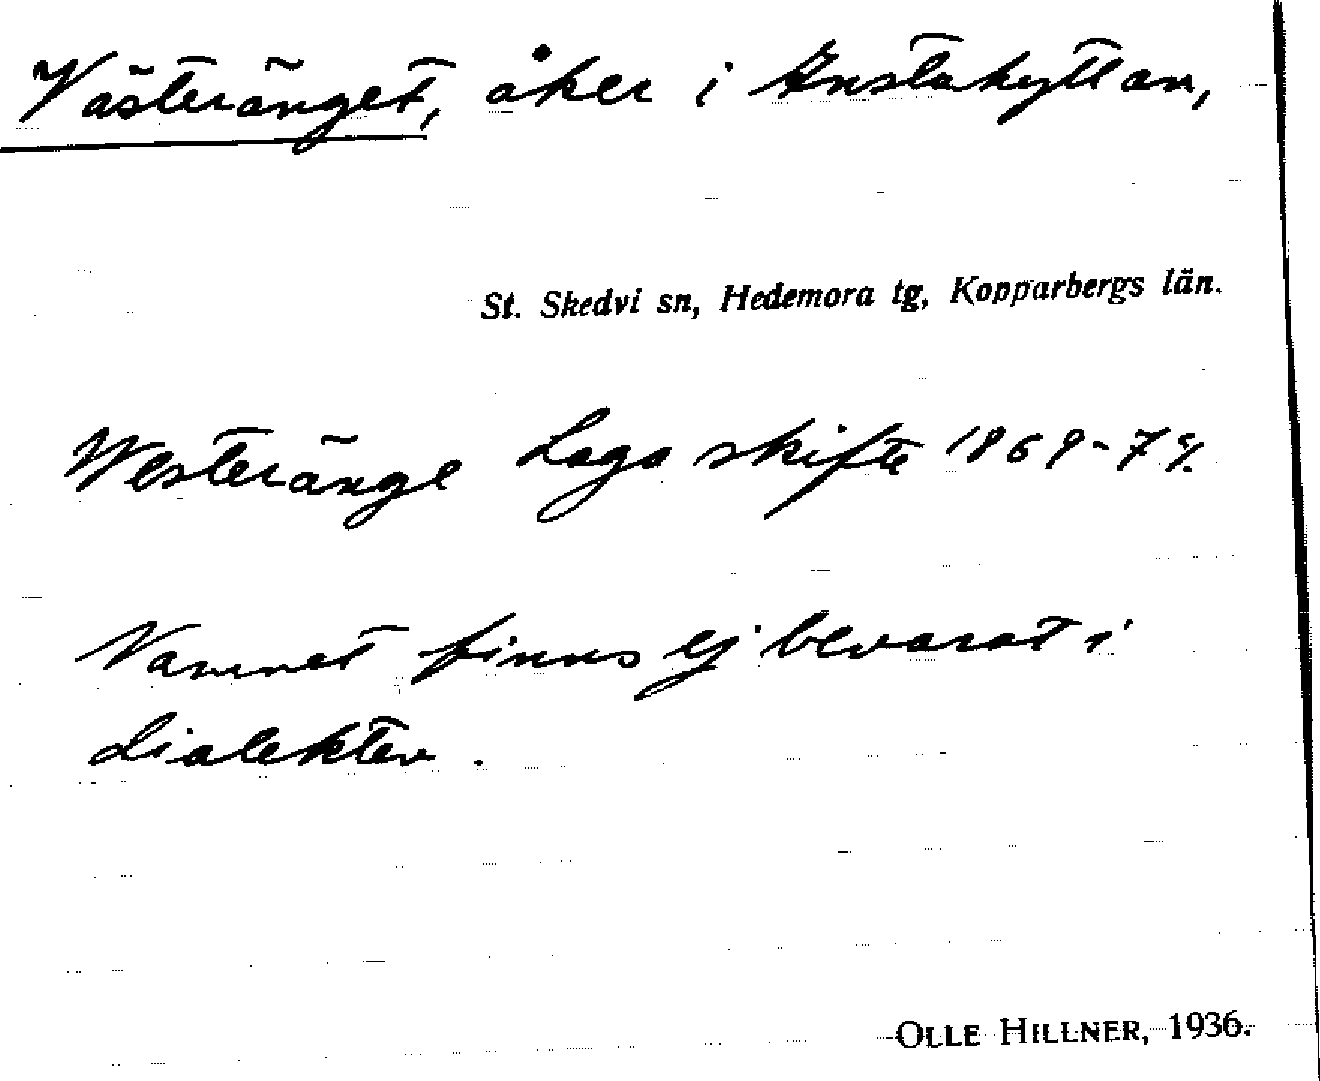 Västeränget, åker i Enstahyttan,
St. Skedvi sn, Hedemora tg, Kopparbergs län.
Westeränge Laga skifte
Namnet finns ej bevarat i
dialekten.
OLLE HILLNER, 1936.